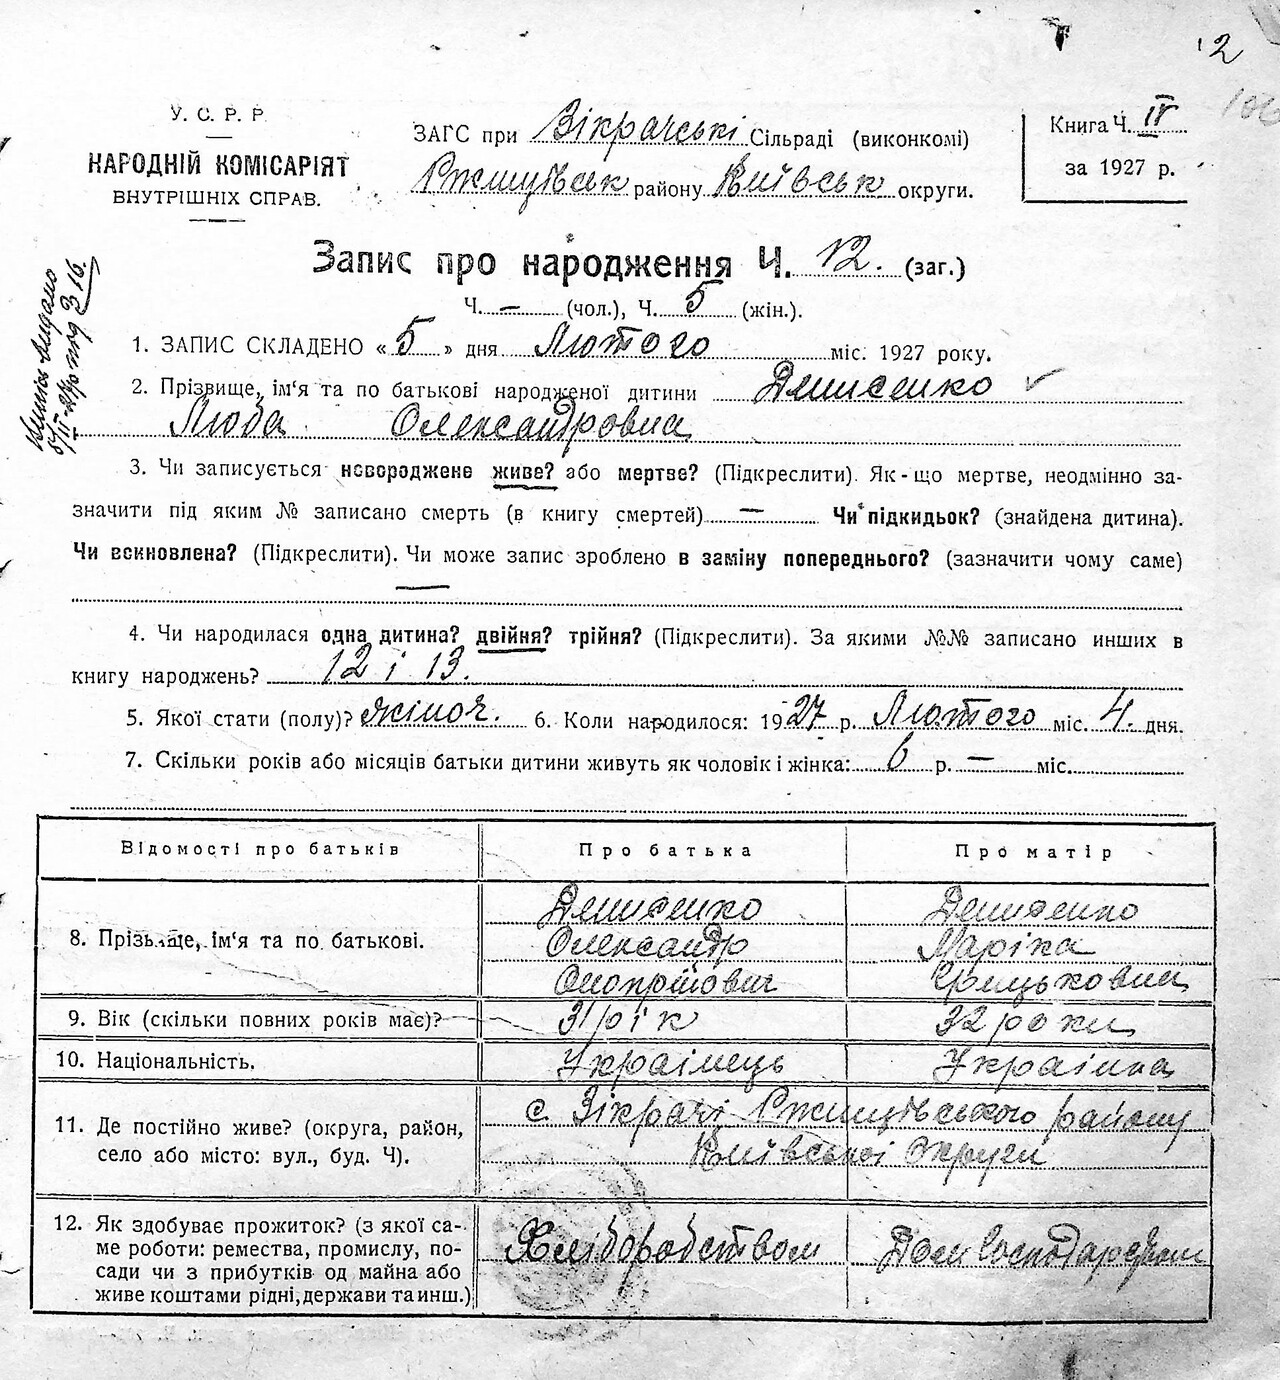 2
106
У. С. Р. Р
НАРОДНІЙ КОМІСАРІЯТ
ВНУТРІШНІХ СПРАВ.
ЗАГС при Зікрачські Сільраді (виконкомі)
Ржищівськ району Київськ округи.
Книга Ч. IV
за 1927 р.
Запис про народження Ч. 12. (заг.)
Ч. — (чол.), Ч. 5 (жін.).
1. ЗАПИС СКЛАДЕНО « 5 » дня Лютого міс. 1927 року.
2. Прізвище, ім'я та по батькові народженої дитини Денисенко
Люба Олександровна
3. Чи записується новороджене живе? або мертве? (Підкреслити). Як-що мертве, неодмінно за-
значити під яким № записано смерть (в книгу смертей) — Чи підкидьок? (знайдена дитина).
Чи всиновлена? (Підкреслити). Чи може запис зроблено в заміну попереднього? (зазначити чому саме)
—
4. Чи народилася одна дитина? двійня? трійня? (Підкреслити). За якими №№ записано инших в
книгу народжень? 12 і 13.
5. Якої стати (полу)? жіноч. 6. Коли народилося: 1927 р. Лютого міс. 4. дня.
7. Скільки років або місяців батьки дитини живуть як чоловік і жінка: 6 р. — міс.
Відомості про батьків Про батька Про матір
8. Прізьвище, ім'я та по батькові.
Денисенко Денисенко
Олександр Маріка
Онопрійович Грицьковна
9. Вік (скільки повних років має)? 31 рік 32 роки
10. Національність. Українець Українка
11. Де постійно живе? (округа, район,
село або місто: вул., буд. Ч).
с. Зікрачі Ржищівського району
Київської Округи
12. Як здобуває прожиток? (з якої са-
ме роботи: ремества, промислу, по-
сади чи з прибутків од майна або
живе коштами рідні, держави та инш.)
Хліборобством Дом господарством